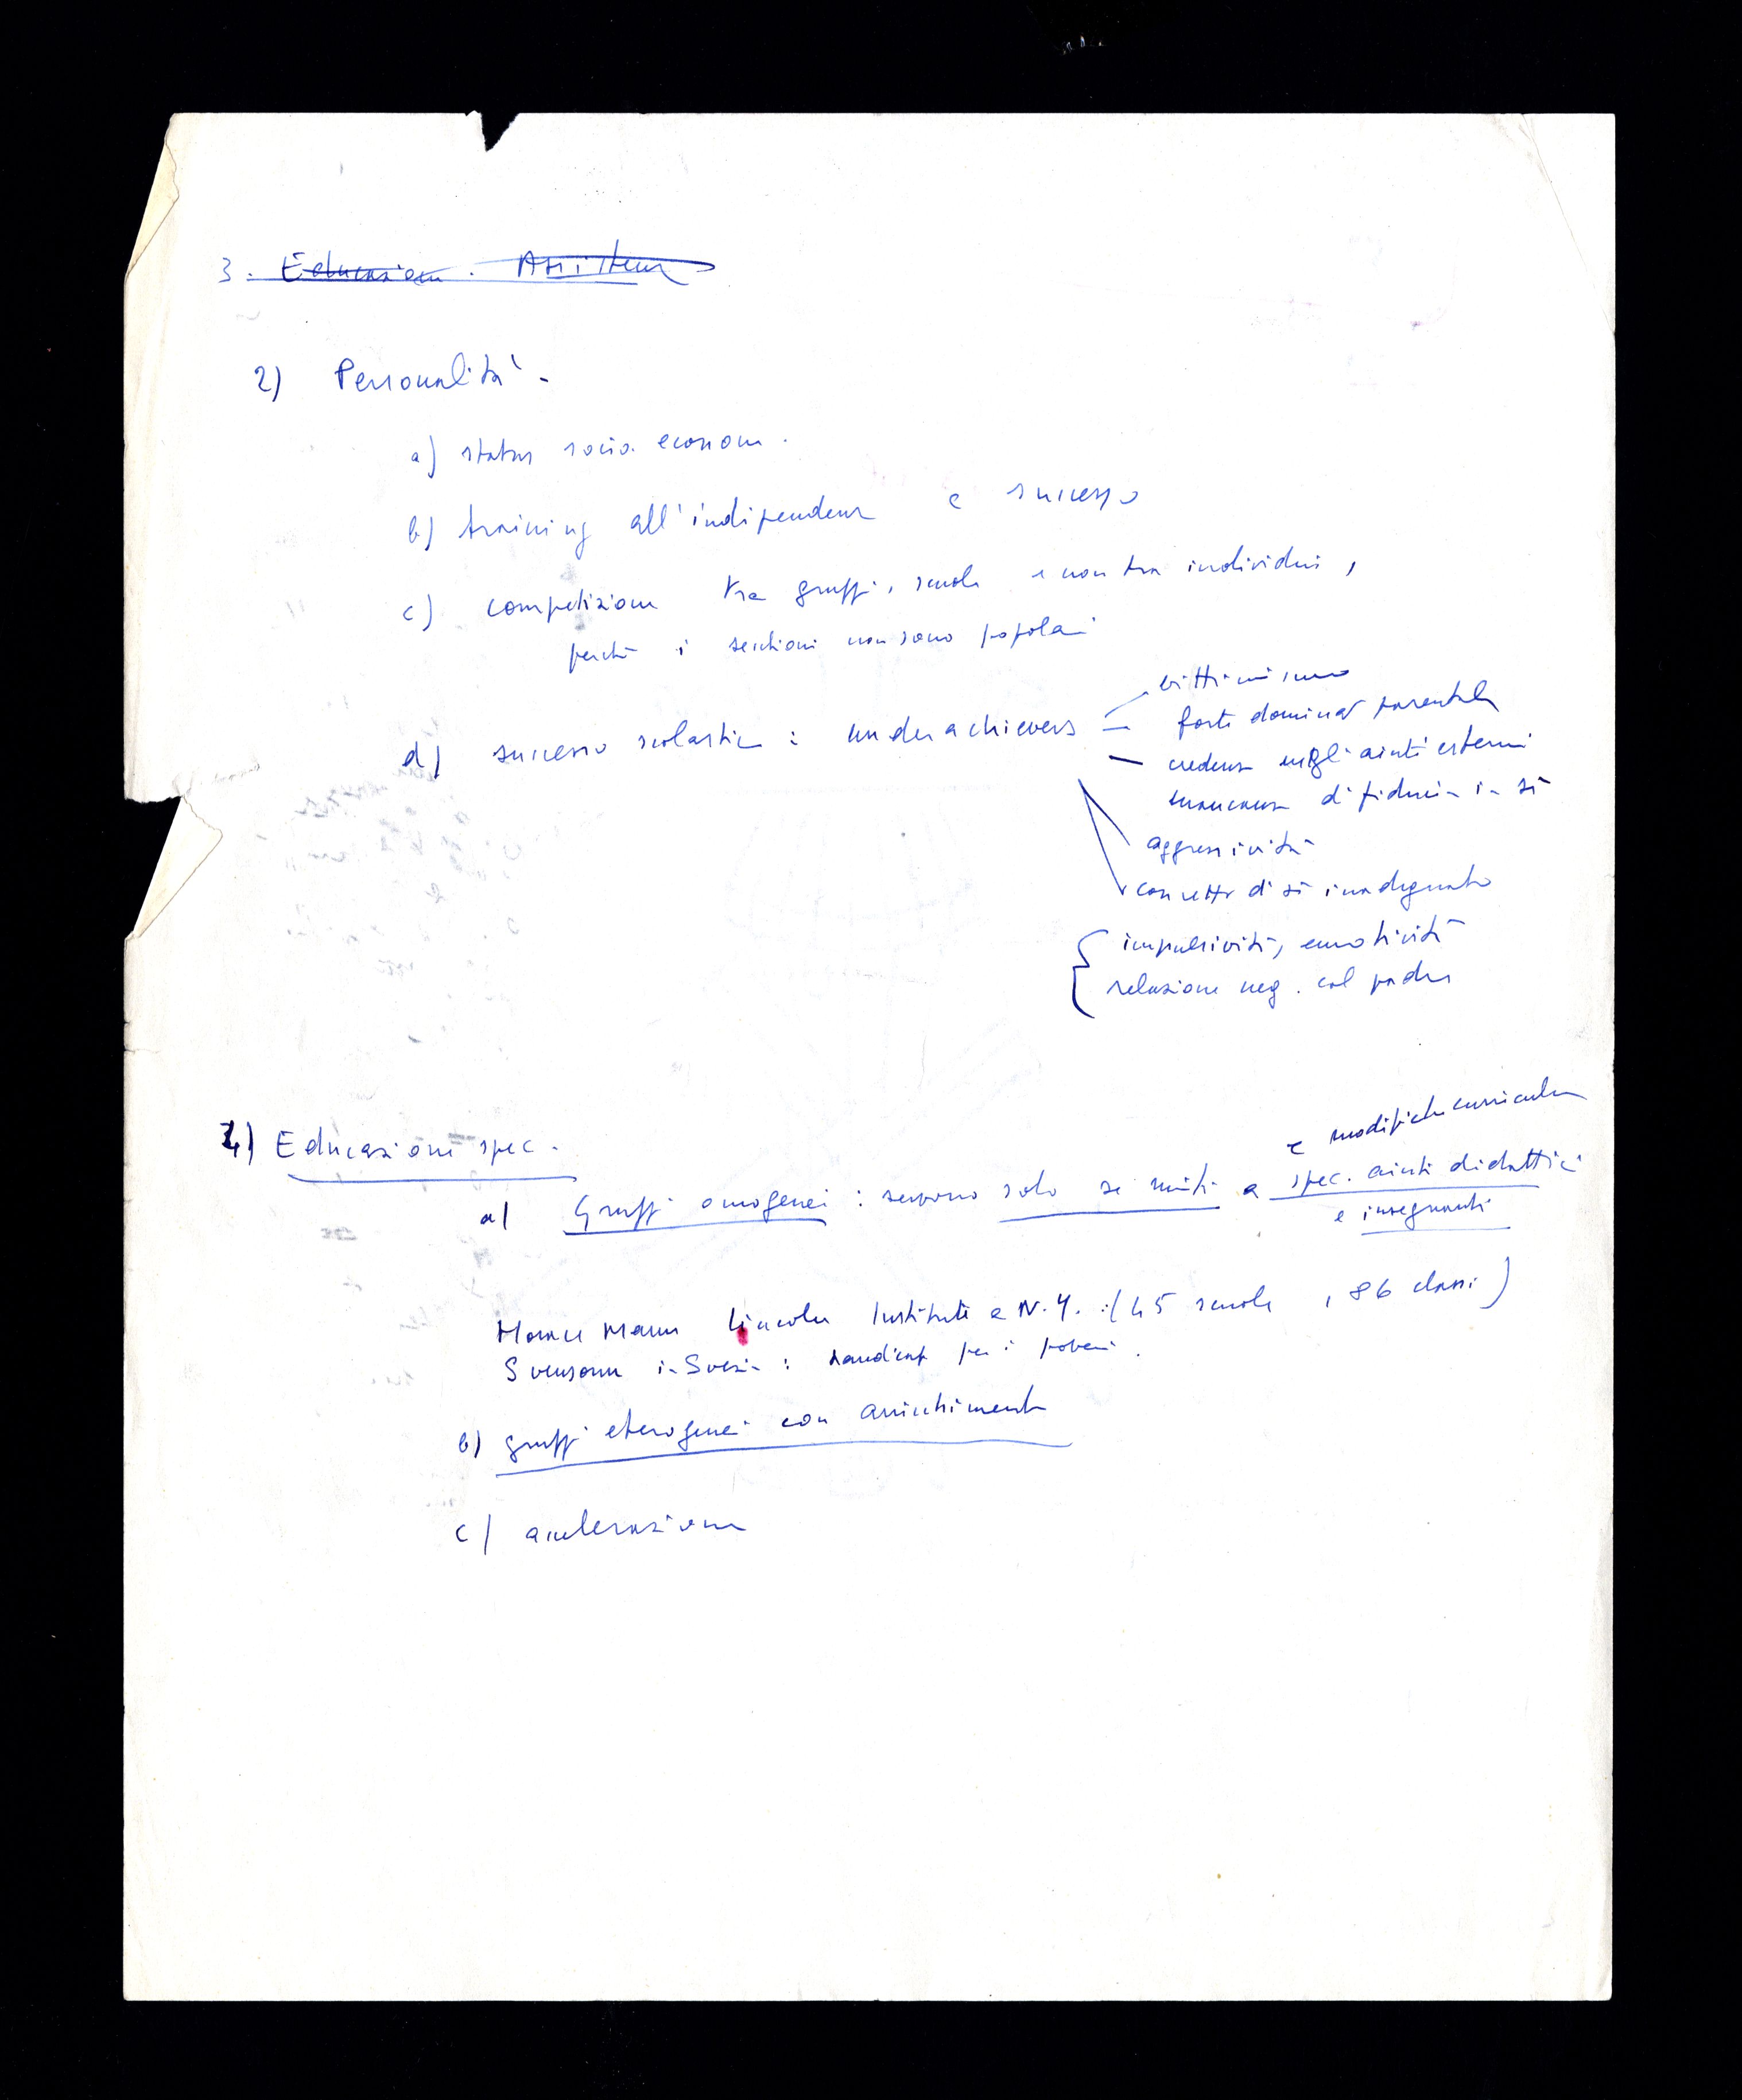 3. Educazione. Assistenza
2) Personalità -
a) status socio. econom.
b) training all'indipendenza e successo
c) competizione tra gruppi, scuole e non tra individui,
perché i secchioni non sono popolari
d) successo scolastico : underachievers
vittimismo
forte dominaz parentale
credenza negli aiuti esterni
mancanza di fiducia in sé
aggressività
concetto di sé inadeguato
impulsività, emotività
relazione neg. col padre
4) Educazione spec.
e modifiche curriculum
a) Gruppi omogenei : servono solo se uniti a spec. aiuti didattici
e insegnanti
Horace Mann Lincoln Institute a N.Y. : (45 scuole, 86 classi)
Svensonn in Svezia : handicap per i poveri.
b) gruppi eterogenei con arricchimento
c) accelerazione